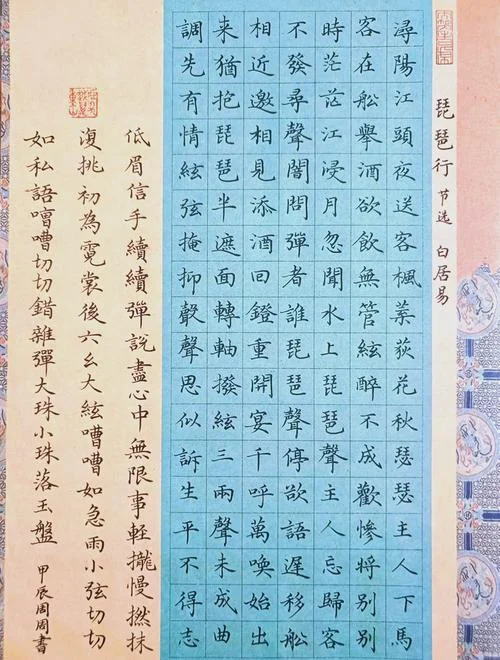 琵琶行 节选 白居易
潯陽江頭夜送客楓葉荻花秋瑟瑟主人下馬
客在舩舉酒欲飲無管絃醉不成歡慘將別別
時茫茫江浸月忽聞水上琵琶聲主人忘歸客
不發尋聲闇問彈者誰琵琶聲停欲語遲移舩
相近邀相見添酒回鐙重開宴千呼萬喚始出
来猶抱琵琶半遮面轉軸撥絃三兩聲未成曲
調先有情絃弦掩抑聲聲思似訴生平不得志
低眉信手續續彈説盡心中無限事軽攏慢撚抹
復挑初為霓裳後六幺大絃嘈嘈如急雨小弦切切
如私語嘈嘈切切錯雜彈大珠小珠落玉盤
甲辰周周書